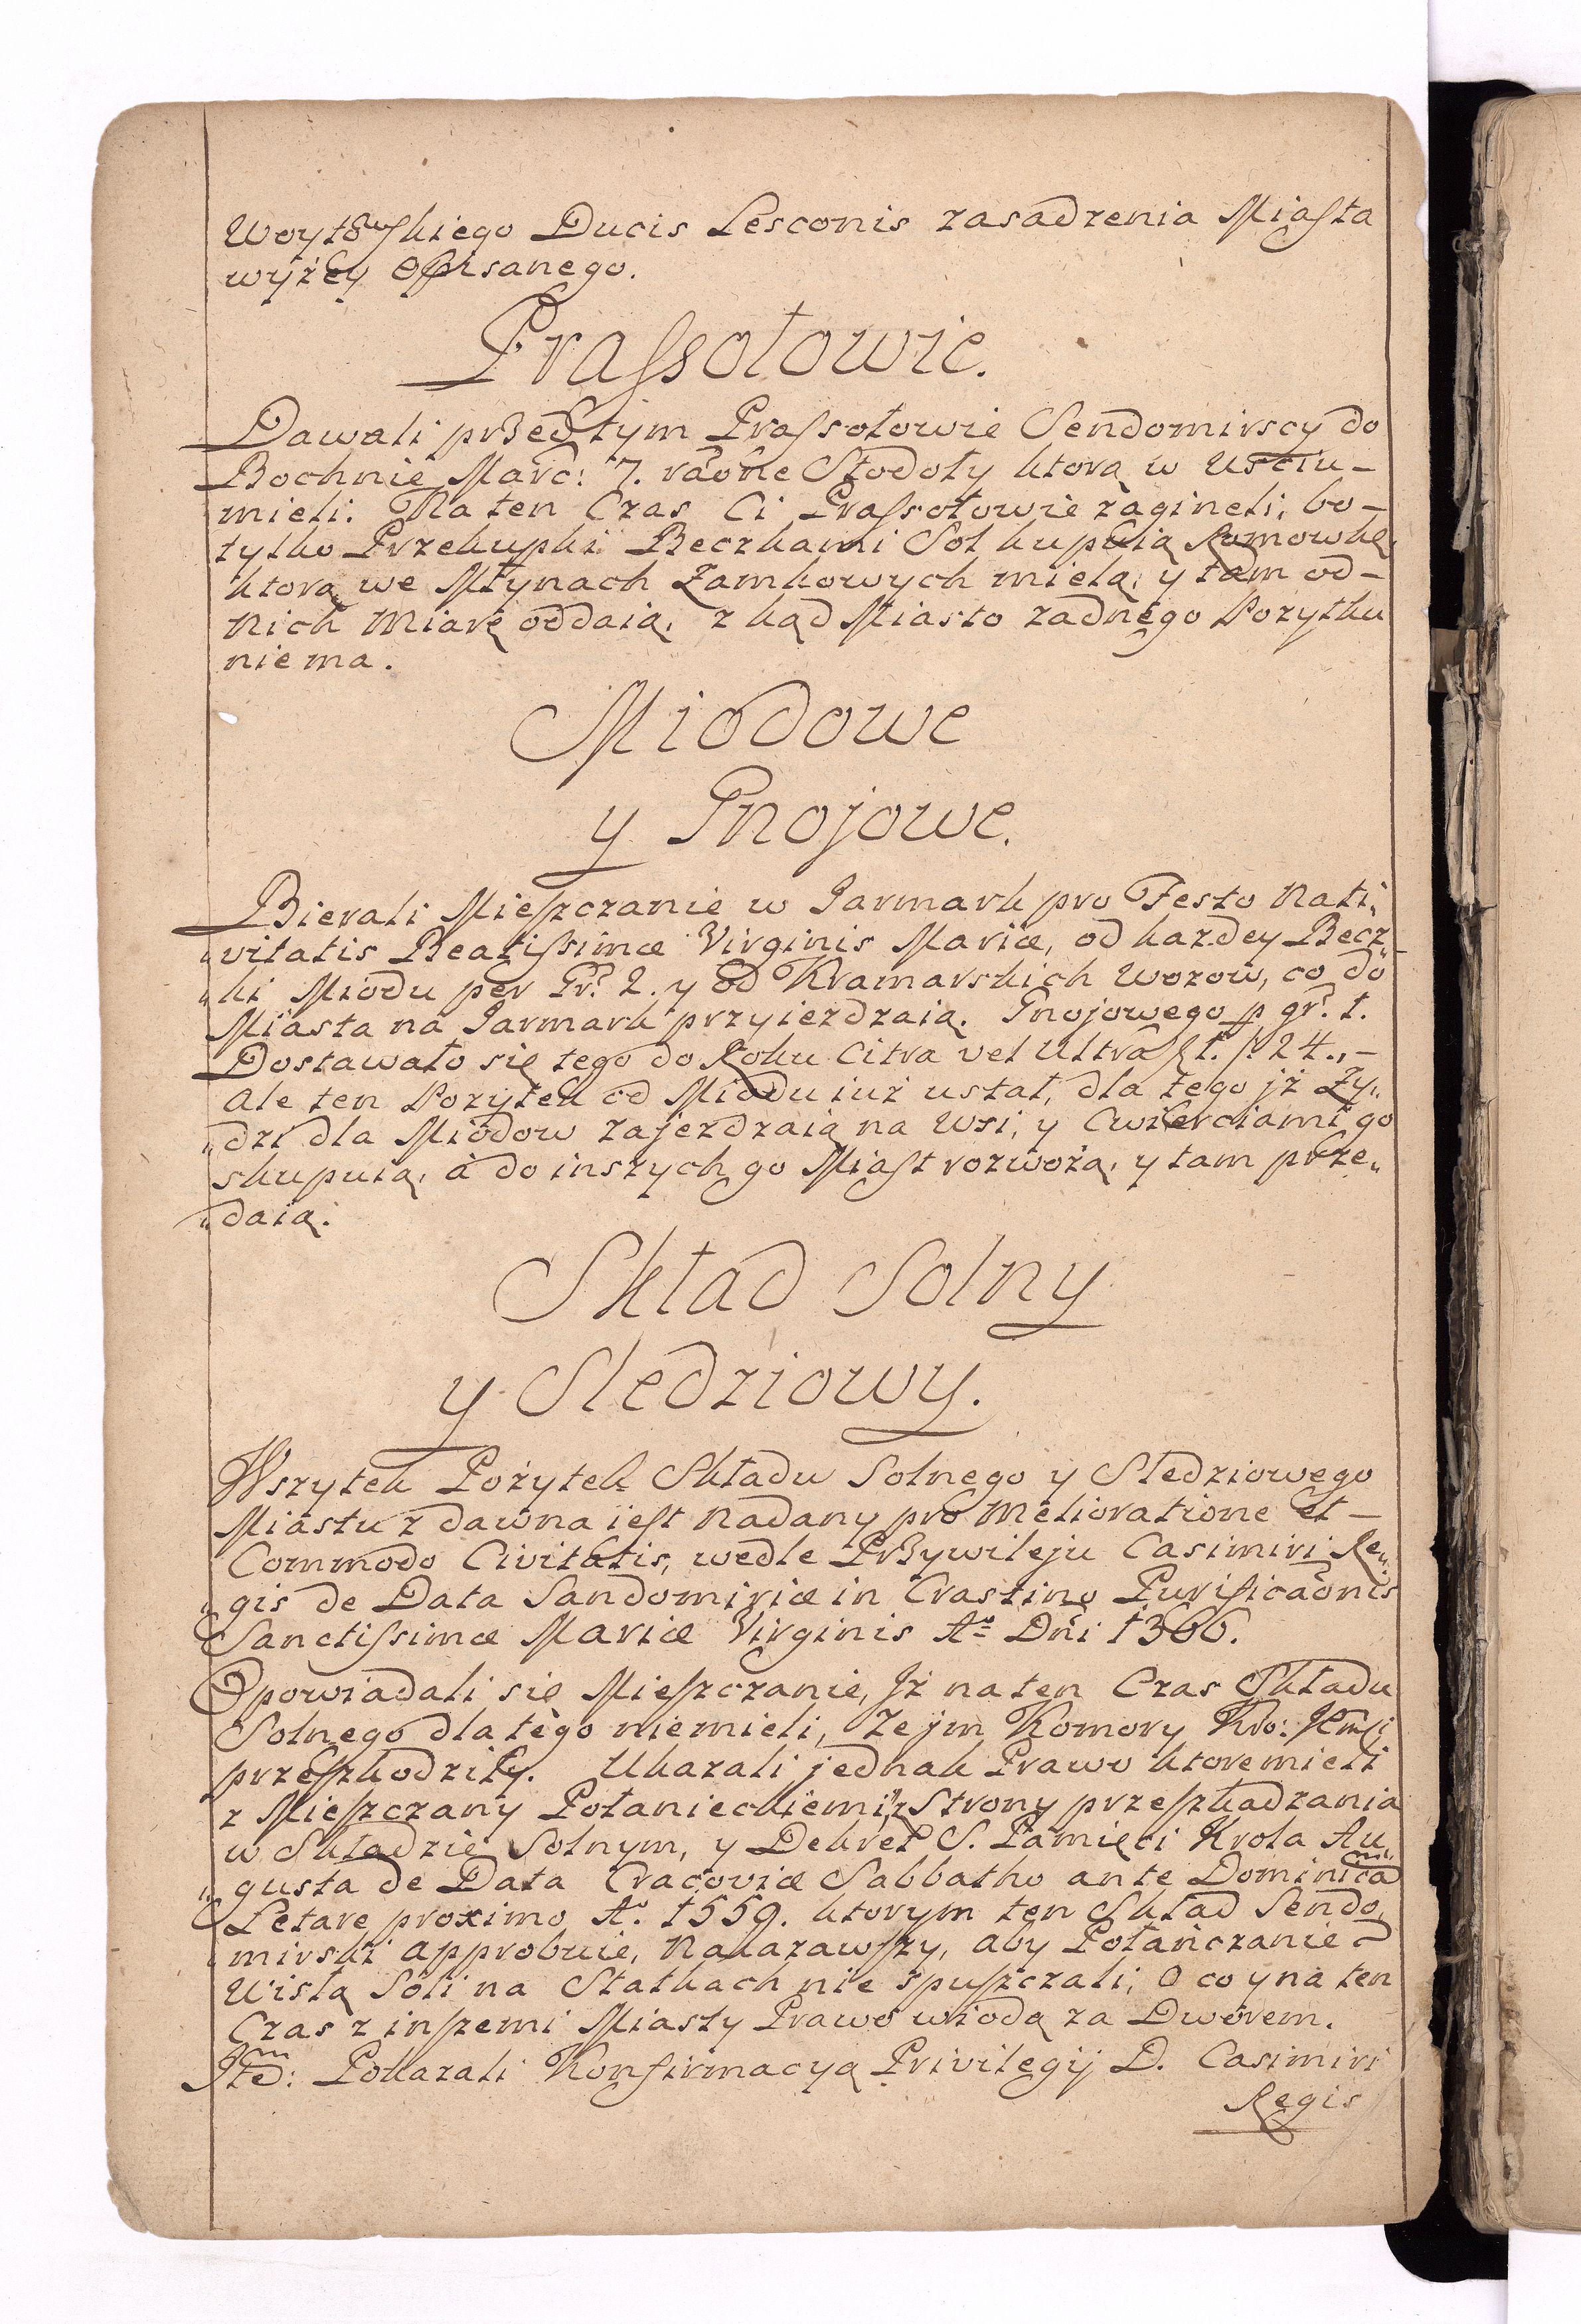 Woytowſkiego Ducis Lesconis zasadzenia Miaſta
wyżey Opisanego.
Praſsołowie.
Dawali przedtym Praſsołowie Sendomirscy do
Bochnie Marc: 7. ratione Stodoły ktorą w Usciu-
mieli. Na ten Czas Ci Praſsołowie zagineli, bo-
tylko Przekupki Beczkami Sol kupuią Rumowkę,
ktorą we Młynach Zamkowych mielą, y tam od-
nich Miarę oddaią, z kąd Miasto zadnego Pozytku
niema.
Miodowe
y Gnojowe.
Bierali Mieſzczanie w Jarmark pro Festo Nati„
„vitatis Beatiſsimæ Virginis Mariæ, od każdey Becz„
„ki Miodu per Gr. 2. y od Kramarskich Wozow, co do
Miasta na Jarmark przyieżdzaią. Gnojowego p gr. 1.
Dostawało się tego do Roku Citra vel Ultra fl. f. 24.,-
Ale ten Pozytek od Miodu iuż ustał, dla tego jż Ży„
„dzi dla Miodow zajezdzaią na Wsi, y Cwierciami go
skupuią, à do inszych go Miaſt rozwożą, y tam prze„
„daią.
Skład Solny
y Sledziowy.
Wszytek Pożytek Składu Solnego y Sledziowego
Miastu z dawna ieſt Nadany pro Melioratione et -
Commodo Civitatis, wedle Przywileju Casimiri Re„
„gis de Data Sandomiriæ in Crastino Purificaõnis
Sanctiſsimæ Mariæ Virginis Aº Dñi 1366.
Opowiadali się Mieſzczanie, Jż na ten Czas Składu
Solnego dla tego niemieli, Ze jm Komory Kro:
przeſzkodziły. Ukazali jednak Prawo ktore mieli
z Mieſzczany Połanieckiemi z Strony przeſzkadzania
w Składzie Solnym, y Dekret S. Pamięci Krola Au„
„gusta de Data Cracoviæ Sabbatho ante Dominicã
Letare proximo, Aº. 1559. ktorym ten Skład Sendo„
„mirski approbuie, Nakazawſzy, aby Połańczanie
Wisłą Soli na Statkach nie spuſzczali, O co y na ten
Czas z inſzemi Miasty Prawo wiodą za Dworem.
Jtẽ: Pokazali Konfirmacyą Privilegij D. Casimiri
Regis